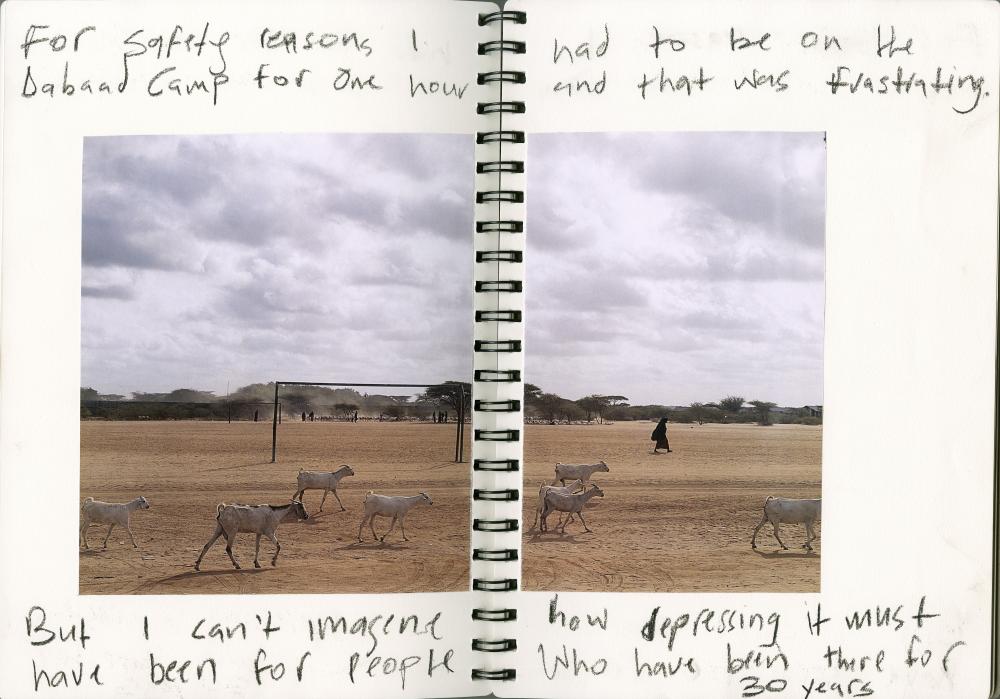 For safety reasons I had to be on the
Dabaad Camp for one hour and that was frastrating.
But I can't imagene how depressing it must
have been for people Who have been there for
30 years